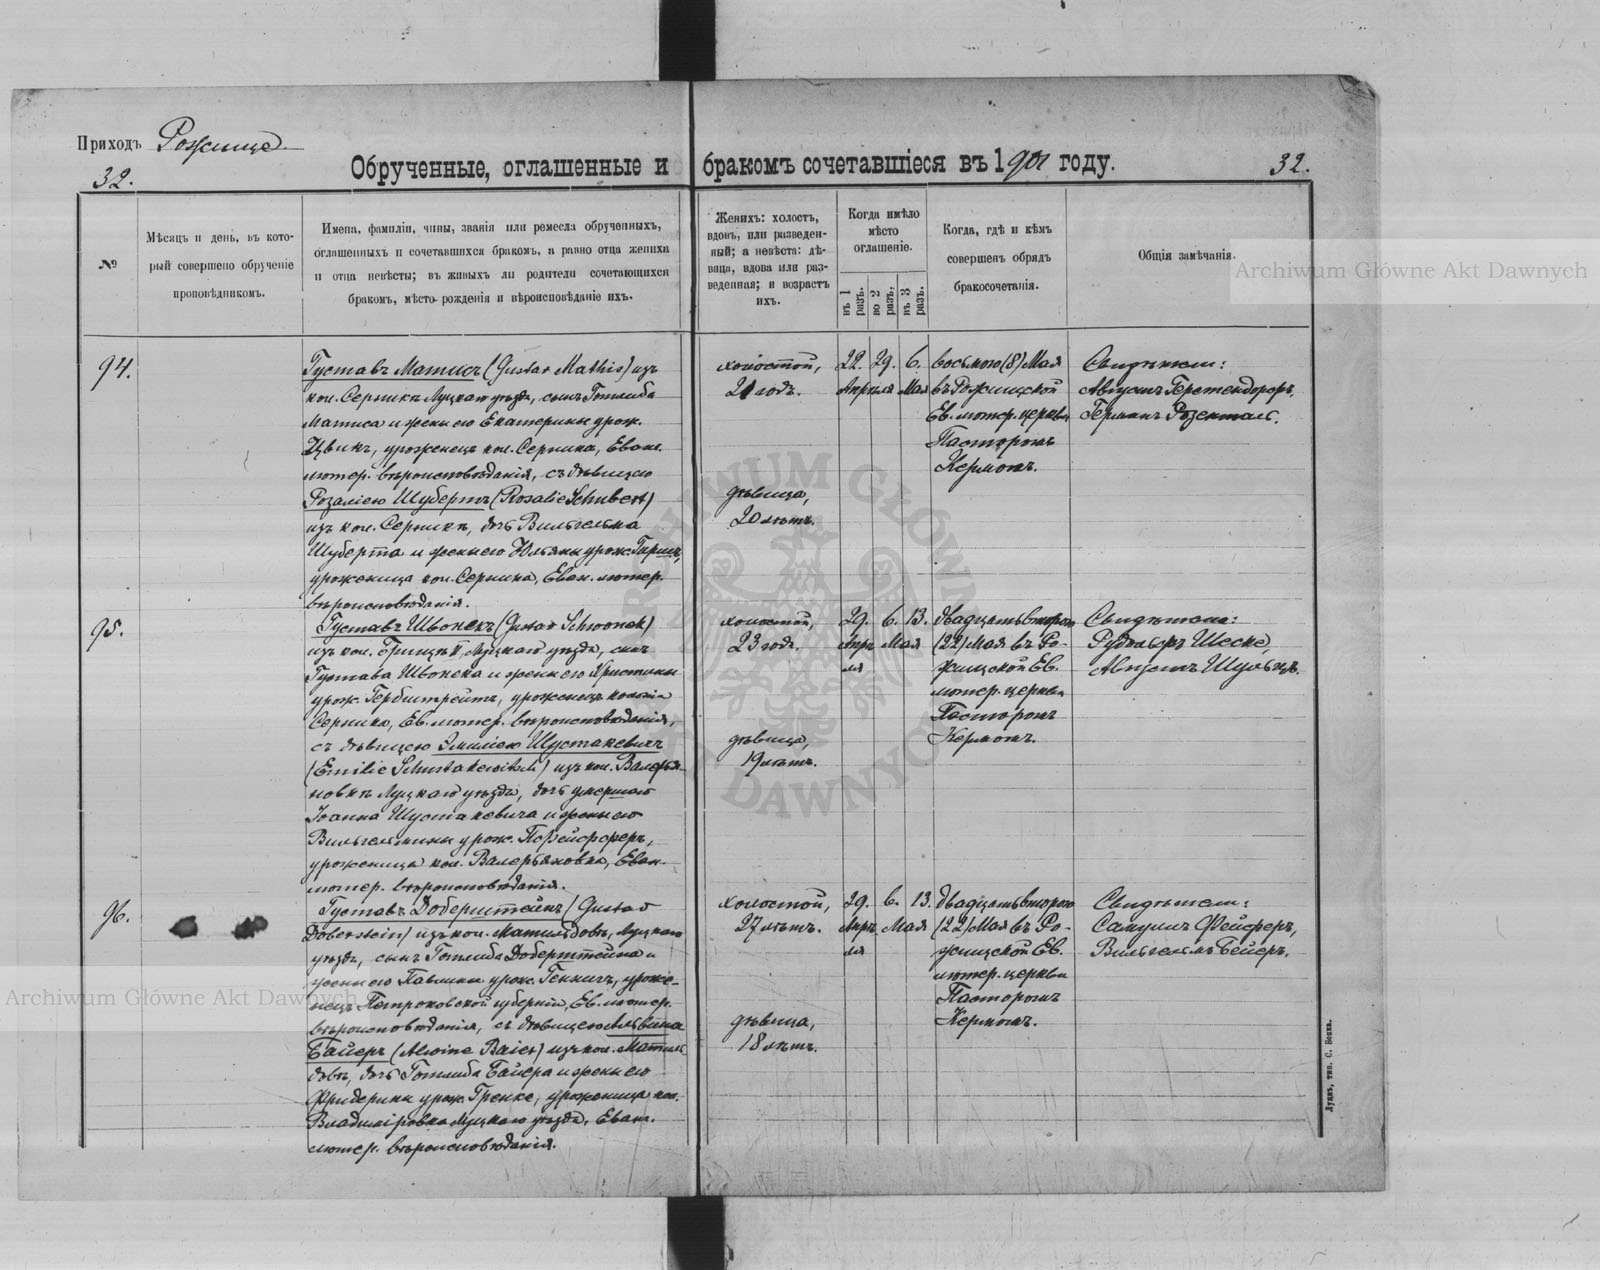 Приходъ Рожище
32.
Обрученные, оглашенные и бракомъ сочетавшіеся въ 1901 году.
32.
№
Мѣсяцъ и день, въ кото-
рый совершено обрученіе
проповѣдникомъ.
Имена, фамиліи, чины, званія или ремесла обрученныхъ,
оглашенныхъ и сочетавшихся бракомъ, а равно отца жениха
и отца невѣсты; въ живыхъ ли родители сочетающихся
бракомъ, мѣсто рожденія и вѣроисповѣданіе ихъ.
Женихъ: холостъ,
вдовъ, или разведен-
ный; а невѣста: дѣ-
вица, вдова или раз-
веденная; и возрастъ
ихъ.
Когда имѣло
мѣсто
оглашеніе.
въ 1 разъ.
во 2 разъ,
въ 3 разъ.
Когда, гдѣ и кѣмъ
совершенъ обрядъ
бракосочетанія.
Общія замѣчанія.
Archiwum Główne Akt Dawnych
94.
Густавъ Матисъ (Gustav Mathis) изъ
кол. Серники Луцкаго уѣзда, сынъ Готлиба
Матиса и жены его Екатерины урож.
Цвикъ, уроженецъ кол. Серника, Еван.
лютер. вѣроисповѣданія, съ дѣвицею
Розаліею Шубертъ (Rosalie Schubert)
изъ кол. Серники, дочь Вильгельма
Шуберта и жены его Юльяны урож.
уроженица кол. Серника, Еван. лютер.
вѣроисповѣданія.
холостой,
21 годъ.
дѣвица,
20 лѣтъ.
22. 29. 6.
Апрѣля Мая
восьмого (8) Мая
въ Рожищской
Ев. лютер. церкви
Пасторомъ
Кермомъ.
Свидѣтели:
Августъ Герстендорфъ,
Германъ Розенталь.
95.
Густавъ Швонекъ (Gustav Schwonek)
изъ кол. Луцкаго уѣзда, сынъ
Густава Швонека и жены его Христины
урож. Гербштрейтъ, уроженецъ колоніи
Серника, Ев. лютер. вѣроисповѣданія,
съ дѣвицею Эмиліею Шустакевичъ
(Emilie Schustakewitsch) изъ кол. Валерья-
новки Луцкаго уѣзда, дочь умершаго
Іоанна Шустакевича и жены его
Вильгельмины урож. Пфейфферъ,
уроженица кол. Валерьяновка, Еван.
лютер. вѣроисповѣданія.
холостой,
23 года.
дѣвица,
19 лѣтъ.
29. 6. 13.
Апрѣ Мая
ля
двадцать второго
(22) Мая въ Ро-
жищской Ев.
лютер. церкви
Пасторомъ
Кермомъ.
Свидѣтели:
Рудольфъ Шеске,
Августъ Шульцъ.
96.
Густавъ Доберштейнъ (Gustav
Doberstein) изъ кол. Матильдовъ, Луцкаго
уѣзда, сынъ Готлиба Доберштейна и
жены его Павлины урож. Геннигъ, уроже-
нецъ Петроковской губерніи, Ев. лютер.
вѣроисповѣданія, съ дѣвицею Альвина
Байеръ (Alwine Baier) изъ кол. Матиль-
довъ, дочь Готлиба Байера и жены его
Фридерики урож. Гренке, уроженица кол.
Владиміровка Луцкаго уѣзда, Еван.
лютер. вѣроисповѣданія.
холостой,
27 лѣтъ.
дѣвица,
18 лѣтъ.
29. 6. 13.
Апрѣ Мая
ля
двадцать второго
(22) Мая въ Ро-
жищской Ев.
лютер. церкви
Пасторомъ
Кермомъ.
Свидѣтели:
Самуилъ Фейферъ,
Вильгельмъ Бейеръ.
Archiwum Główne Akt Dawnych
ARCHIWUM GŁÓWNE AKT DAWNYCH
Луцкъ, тип. С. Бокка.